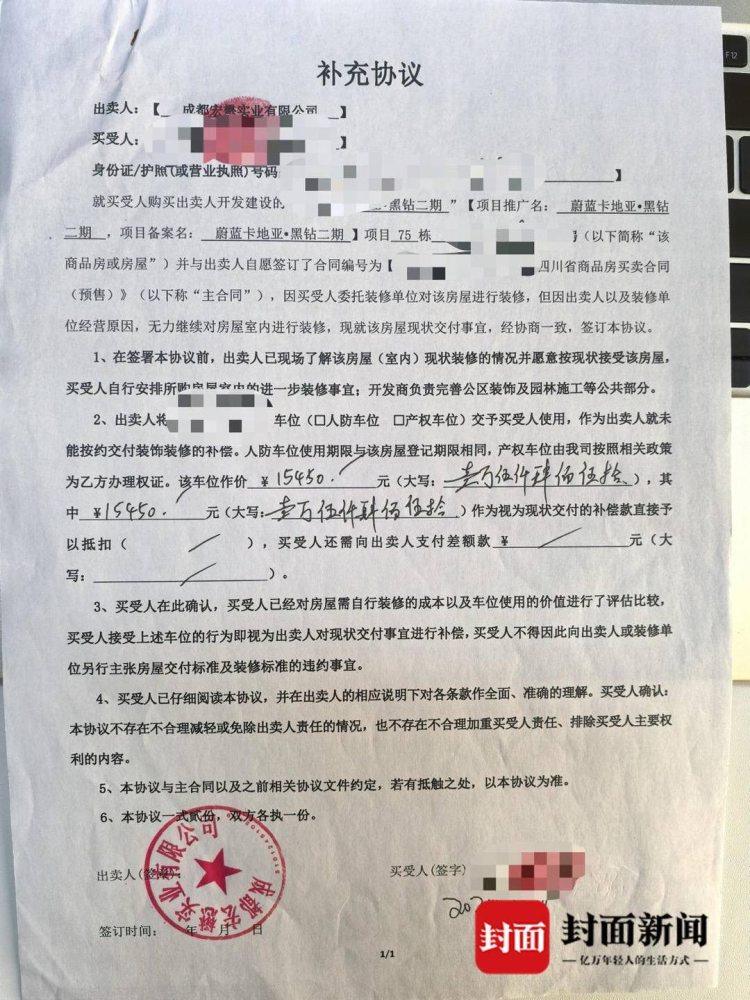 补充协议
出卖人：【 成都宏懋实业有限公司 】
买受人： 】
身份证/护照(或营业执照)号码 】
就买受人购买出卖人开发建设的 ·黑钻二期 ”【项目推广名： 蔚蓝卡地亚•黑钻
二期 ，项目备案名： 蔚蓝卡地亚•黑钻二期 】项目 75 栋 号（以下简称“该
商品房或房屋”）并与出卖人自愿签订了合同编号为【 四川省商品房买卖合同
（预售）》（以下称“主合同”），因买受人委托装修单位对该房屋进行装修，但因出卖人以及装修单
位经营原因，无力继续对房屋室内进行装修，现就该房屋现状交付事宜，经协商一致，签订本协议。
1、在签署本协议前，出卖人已现场了解该房屋（室内）现状装修的情况并愿意按现状接受该房屋，
买受人自行安排所购房屋室内的进一步装修事宜；开发商负责完善公区装饰及园林施工等公共部分。
2、出卖人将 车位（□人防车位 □产权车位）交予买受人使用，作为出卖人就未
能按约交付装饰装修的补偿。人防车位使用期限与该房屋登记期限相同，产权车位由我司按照相关政策
为乙方办理权证。该车位作价 ¥15450. 元（大写：壹万伍仟肆佰伍拾 ），其
中 ¥15450. 元（大写：壹万伍仟肆佰伍拾 ）作为视为现状交付的补偿款直接予
以抵扣（ / ），买受人还需向出卖人支付差额款 ¥ / 元（大
写： / ）。
3、买受人在此确认，买受人已经对房屋需自行装修的成本以及车位使用的价值进行了评估比较，
买受人接受上述车位的行为即视为出卖人对现状交付事宜进行补偿，买受人不得因此向出卖人或装修单
位另行主张房屋交付标准及装修标准的违约事宜。
4、买受人已仔细阅读本协议，并在出卖人的相应说明下对各条款作全面、准确的理解。买受人确认：
本协议不存在不合理减轻或免除出卖人责任的情况，也不存在不合理加重买受人责任、排除买受人主要权
利的内容。
5、本协议与主合同以及之前相关协议文件约定，若有抵触之处，以本协议为准。
6、本协议一式贰份，双方各执一份。
出卖人(签章)： 买受人(签字)
成都宏懋实业有限公司
签订时间： 年 月 日
1/1
封面 封面新闻
亿万年轻人的生活方式
F12